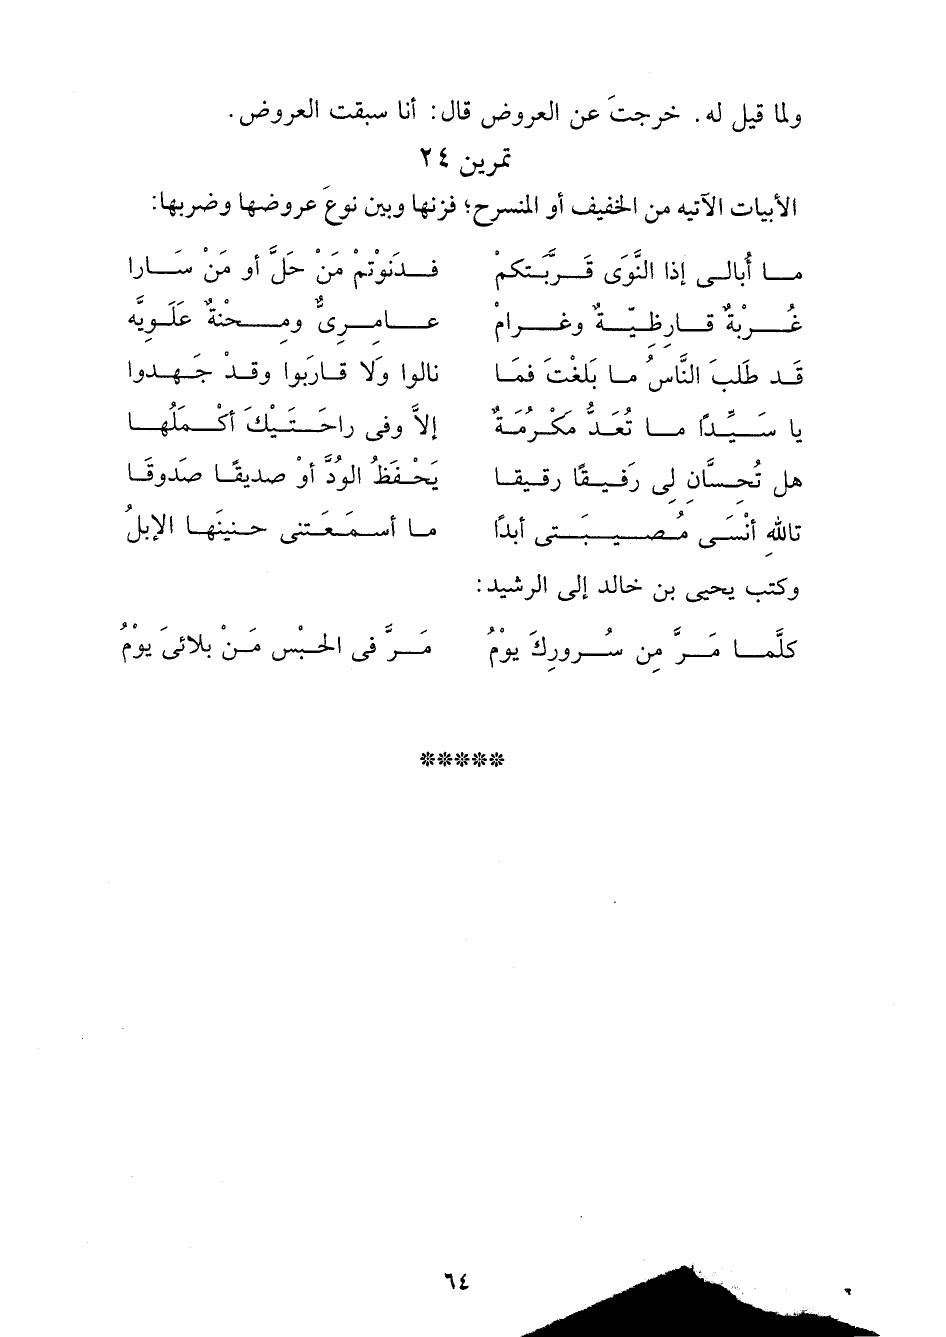 ولما قيل له. خرجتَ عن العروض قال: أنا سبقت العروض.
تمرين ٢٤
الأبيات الآتيه من الخفيف أو المنسرح؛ فزنها وبين نوعَ عروضها وضربها:
مـا أُبالـى إذا النَّوَى قَـرَّبَـتـكمْ فـدَنَوْتمْ مَنْ حَلَّ أو مَنْ سَـارا
غُـربْةٌ قـارِظِيّـةٌ وغـرامْ عـامِـرِىٌّ ومِـحْنةٌ عَلَـوِيَّه
قَـد طَلَبَ النَّاسُ مـا بَلَغْتَ فمَا نالوا وَلَا قـارَبوا وقـدْ جَـهـدوا
يا سَـيِّـدًا مـا تُعَـدُّ مَكْـرُمَـةٌ إلاَّ وفى راحَـتَـيْـكَ أكْـمَـلُهـا
هل تُحِـسَّانِ لى رَفـيـقًا رقـيـقا يَحْـفَظُ الوُدَّ أوْ صديقًـا صَدَوقَـا
تاللهِ أنْسَـى مُـصـيـبَـتـى أبدًا ما أسـمَـعَـتنى حـنينَهـا الإبلُ
وكتب يحيى بن خالد إلى الرشيد:
كلَّمـا مَـرَّ مِن سُـرورِكَ يوْمُ مَـرَّ فى الحَـبْسِ مَـنْ بلائىَ يوْمُ
*****
٦٤